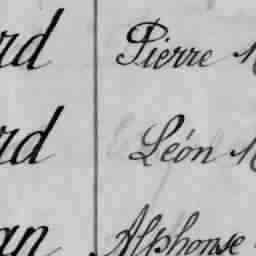 rd Pierre
rd Léon
an Alphonse